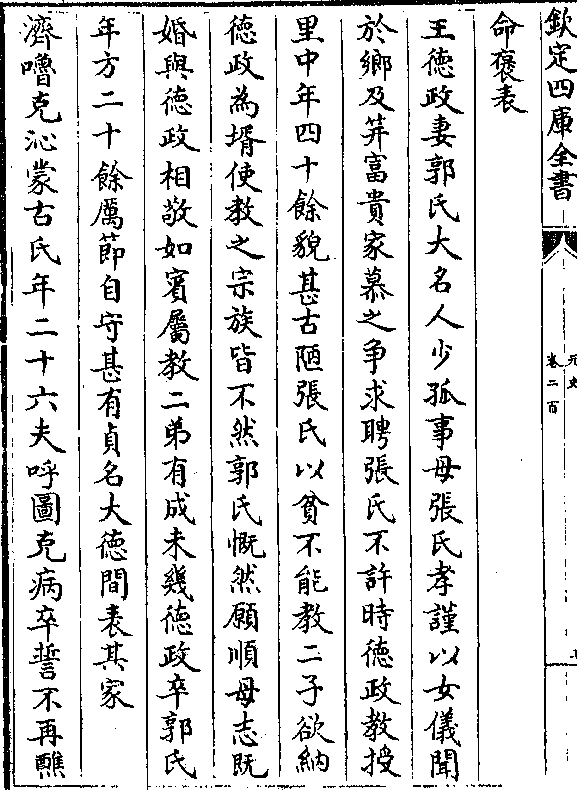 欽定四庫全書
元史
卷二百
命褒表
王德政妻郭氏大名人少孤事母張氏孝謹以女儀聞
於鄉及笄富貴家慕之争求聘張氏不許時德政教授
里中年四十餘貌甚古陋張氏以貧不能教二子欲納
德政為壻使教之宗族皆不然郭氏慨然願順母志既
婚與德政相敬如賓屬教二弟有成未幾德政卒郭氏
年方二十餘厲節自守甚有貞名大德間表其家
濟嚕克沁蒙古氏年二十六夫呼圖克病卒誓不再醮